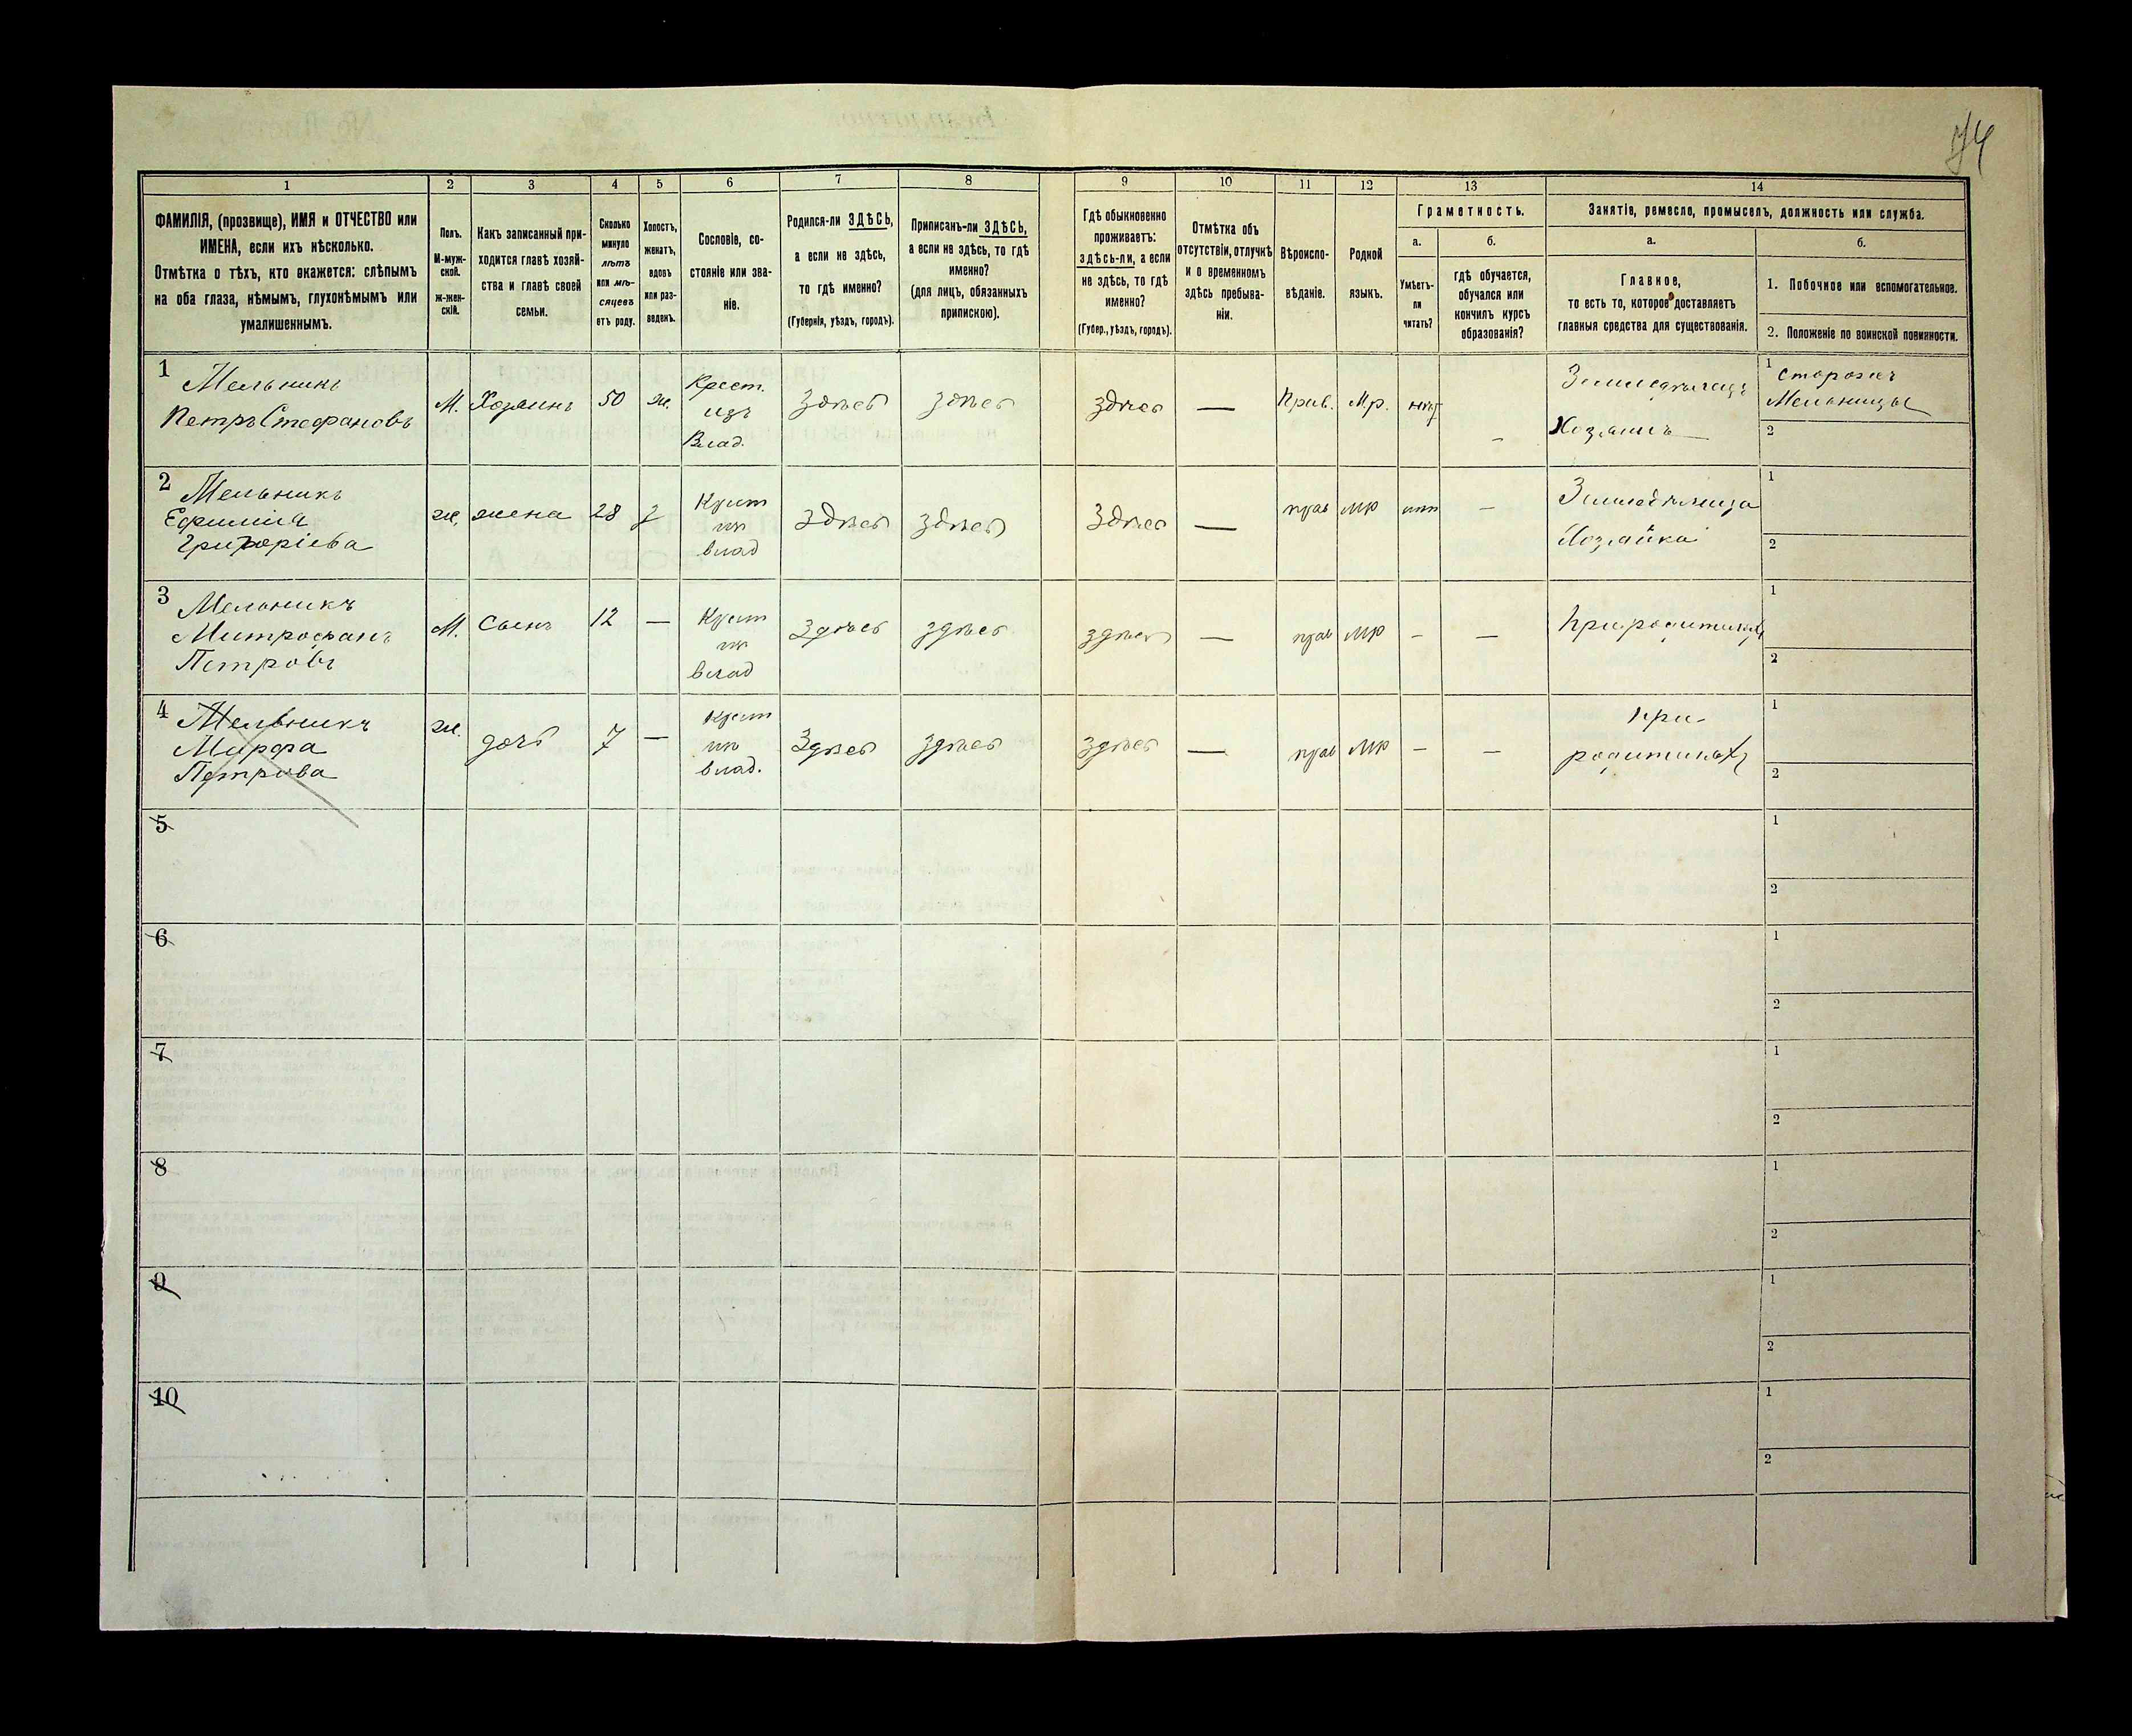 74
1 2 3 4 5 6 7 8 9 10 11 12 13 14
ФАМИЛІЯ, (прозвище), ИМЯ и ОТЧЕСТВО или
ИМЕНА, если ихъ нѣсколько.
Отмѣтка о тѣхъ, кто окажется: слѣпымъ
на оба глаза, нѣмымъ, глухонѣмымъ или
умалишеннымъ.
Полъ.
М-муж-
ской.
ж-жен-
скій.
Какъ записанный при-
ходится главѣ хозяй-
ства и главѣ своей
семьи.
Сколько
минуло
лѣтъ
или мѣ-
сяцевъ
отъ роду.
Холостъ,
женатъ,
вдовъ
или раз-
веденъ.
Сословіе, со-
стояніе или зва-
ніе.
Родился-ли ЗДѢСЬ,
а если не здѣсь,
то гдѣ именно?
(Губернія, уѣздъ, городъ).
Приписанъ-ли ЗДѢСЬ,
а если не здѣсь, то гдѣ
именно?
(для лицъ, обязанныхъ
припискою).
Гдѣ обыкновенно
проживаетъ:
здѣсь-ли, а если
не здѣсь, то гдѣ
именно?
(Губер., уѣздъ, городъ).
Отмѣтка объ
отсутствіи, отлучкѣ
и о временномъ
здѣсь пребыва-
ніи.
Вѣроиспо-
вѣданіе.
Родной
языкъ.
Грамотность.
а.
Умѣетъ-
ли
читать?
б.
гдѣ обучается,
обучался или
кончилъ курсъ
образованія?
Занятіе, ремесло, промыселъ, должность или служба.
а.
Главное,
то есть то, которое доставляетъ
главныя средства для существованія.
б.
1. Побочное или вспомогательное.
2. Положеніе по воинской повинности.
1
Мельникъ
Петръ Стефановъ
М.
Хозяинъ
50
ж.
Крест.
изъ
Влад.
Здѣсь
здѣсь
здѣсь
—
Прав.
Мр.
нѣт
–
Земледѣлецъ
Хозяинъ
1 сторожъ
Мельницы
2
2
Мельникъ
Ефимія
Григоріева
ж.
жена
28
Крест
из
влад
здѣсь
здѣсь
здѣсь
—
прав
мр
нѣт
–
Земледѣлица
Хозяйка
1
2
3
Мельникъ
Митрофанъ
Петровъ
М.
Сынъ
12
—
Крест
из
влад
здѣсь
здѣсь
здѣсь
—
прав
мр
–
–
при родителях
1
2
4
Мельникъ
Марфа
Петрова
ж.
дочь
7
—
Крест
из
влад.
здѣсь
здѣсь
здѣсь
—
прав
мр
–
–
при
родителях
1
2
5
1
2
6
1
2
7
1
2
8
1
2
9
1
2
10
1
2